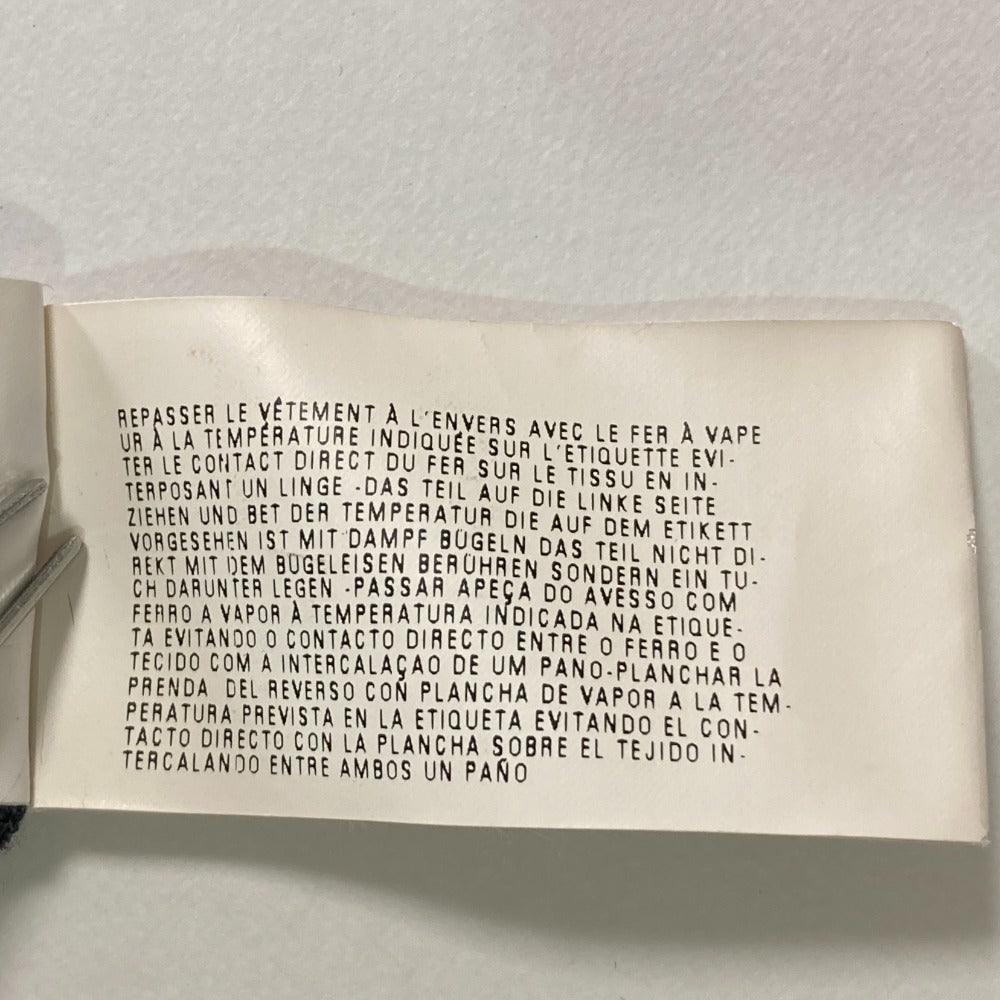 REPASSER LE VÊTEMENT À L'ENVERS AVEC LE FER À VAPE
UR À LA TEMPÉRATURE INDIQUÉE SUR L'ETIQUETTE EVI-
TER LE CONTACT DIRECT DU FER SUR LE TISSU EN IN-
TERPOSANT UN LINGE -DAS TEIL AUF DIE LINKE SEITE
ZIEHEN UND BET DER TEMPERATUR DIE AUF DEM ETIKETT
VORGESEHEN IST MIT DAMPF BÜGELN DAS TEIL NICHT DI-
REKT MIT DEM BÜGELEISEN BERÜHREN SONDERN EIN TU-
CH DARUNTER LEGEN -PASSAR APEÇA DO AVESSO COM
FERRO A VAPOR À TEMPERATURA INDICADA NA ETIQUE-
TA EVITANDO O CONTACTO DIRECTO ENTRE O FERRO E O
TECIDO COM A INTERCALAÇAO DE UM PANO-PLANCHAR LA
PRENDA DEL REVERSO CON PLANCHA DE VAPOR A LA TEM-
PERATURA PREVISTA EN LA ETIQUETA EVITANDO EL CON-
TACTO DIRECTO CON LA PLANCHA SOBRE EL TEJIDO IN-
TERCALANDO ENTRE AMBOS UN PAÑO